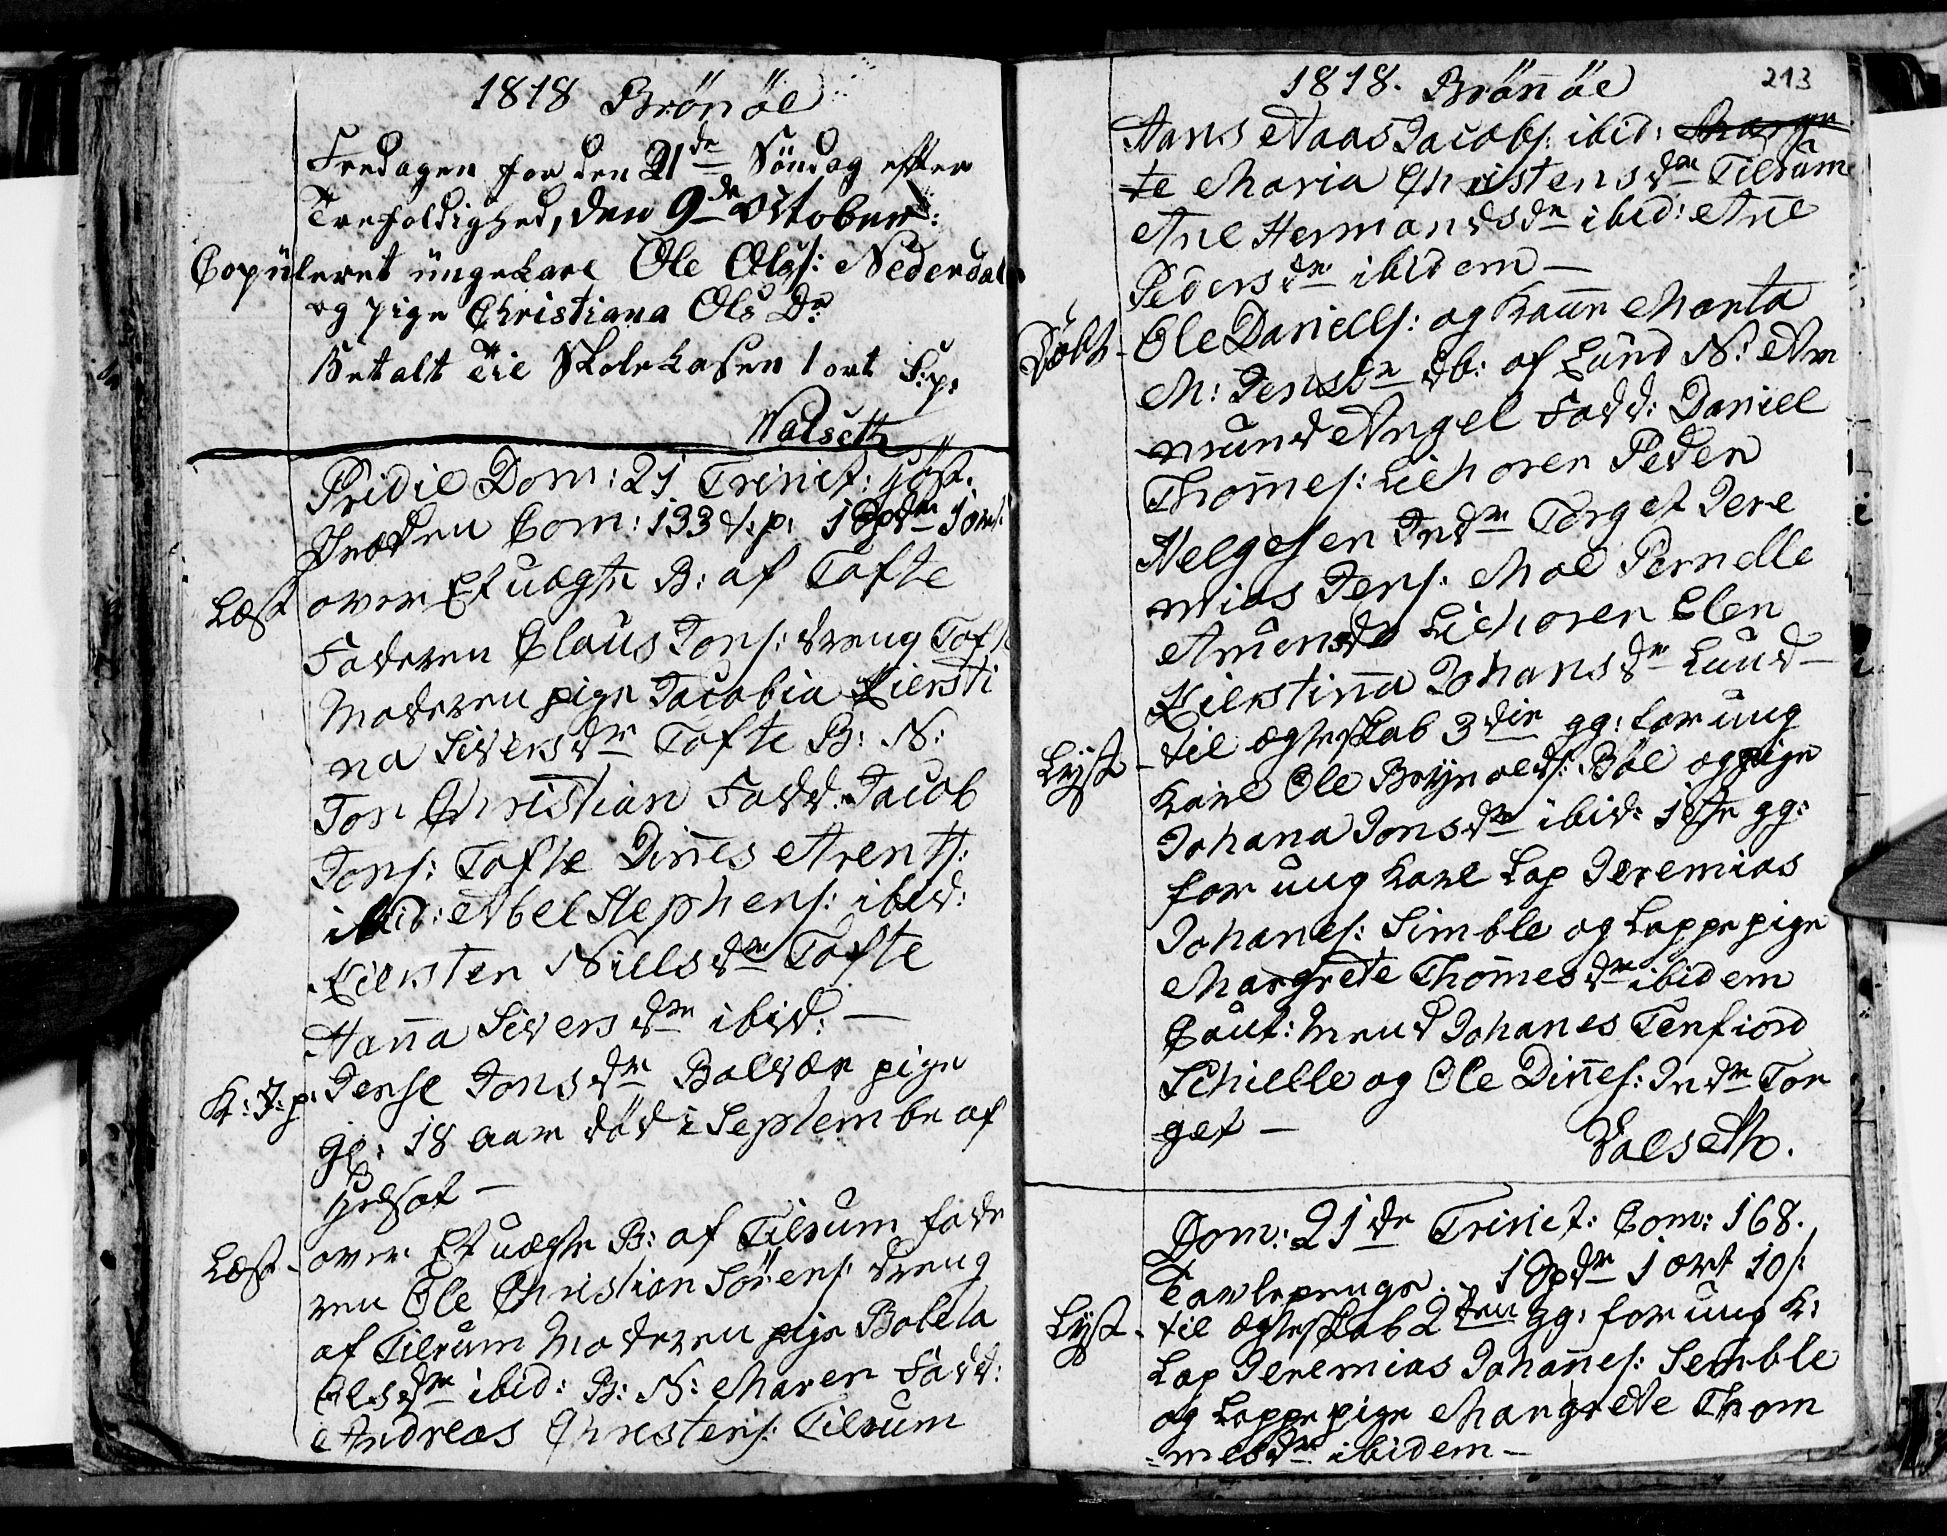 1818 Brönöe
Fredagen for den 21de Söndag efter
Trefoldighed, den 9de October:
Copüleret üngekarl Ole Ols: Nederdal
og pige Christiana Ols Dr
Betalt til Skolekassen 1 ort S:p:
Walseth
Pridie Dom: 21 Trinit: höst.
Præken Com: 133 t:p: 1 Spdr 1 ort
Læst over Et uægte B: af Tofte
Faderen Claus Jons: dreng Tofte
Moderen pige Jacobia Kiersti
na Siversdr Tofte B: N:
Jon Christian Fadd: Jacob
Jons: Tofte Dines Arents:
ibid: Abel Stephens: ibid:
Kiersten Nielsdr Tofte
Hanna Siversdr ibid: —
K: J: p: Jense Jonsdr Bolvær pige
gl: 18 aar död i Septembr af
—
Læst - over Et uægte B: af Tilrum fade
ren Ole Christian Sörens: dreng
af Tilrum Moderen pige Boleta
Olsdr ibid: B: N: Maren Fadd:
Andreas Christens: Tilrum
213
1818. Brönöe
Hans Naas Jacobs: ibid: Margre
te Maria Christensdr Tilrum
Ane Hermandsdr ibid: Ane
Pedersdr ibidem —
Döbt - Ole Daniels: og Kone Marta
M: Jensdr db: af Lund N: Am
mund Angel Fadd: Daniel
Thomes: Lihoren Peder
Helgesen Indr Torget Jere
mias Jens: Moe Pernelle
Amonsdr Lihoren Elen
Kierstinna Johansdr Lund —
Lyst - til ægteskab 3die gg: for ung
karl Ole Brynolds: Böe og pige
Johana Jonsdr ibid: 1ste gg:
for ung karl Lap Jeremias
Johanes: Simble og Lappepige
Margrete Thomesdr ibidem
Caut: Mend Johanes Tenfiord
Schille og Ole Dines: Indr Tor
get —
Valseth.
Dom: 21de Trinit: Com: 168.
Tavlepenge. 1 Spdr 1 ort 10 s:
Lyst - til ægteskab 2den gg: for ung K:
Lap Jeremias Johannes: Semble
og Lappepige Margrete Thom
=mesdr ibidem —